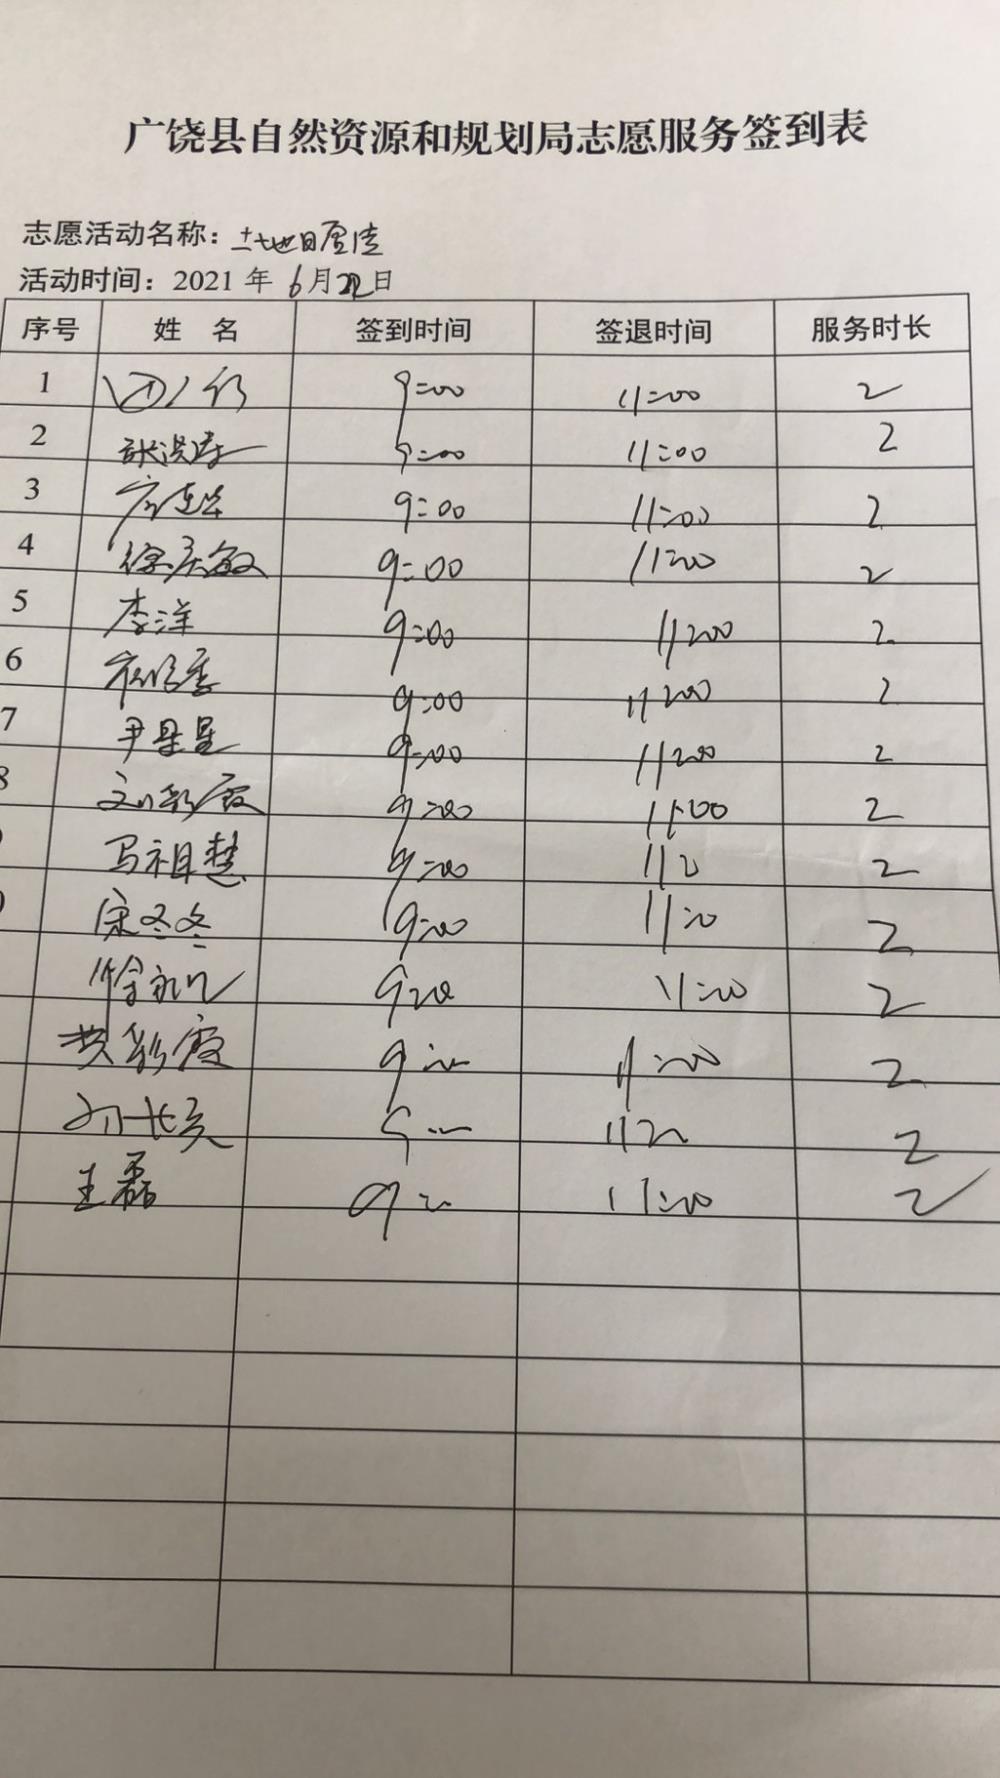 广饶县自然资源和规划局志愿服务签到表
志愿活动名称：土地日宣传
活动时间：2021年6月22日
序号 姓名 签到时间 签退时间 服务时长
1 9:00 11:00 2
2 张洪涛 9:00 11:00 2
3 9:00 11:00 2
4 徐庆敏 9:00 11:00 2
5 李洋 9:00 11:00 2
6 9:00 11:00 2
7 尹星星 9:00 11:00 2
8 刘彩霞 9:00 11:00 2
马祖慧 9:00 2
宋冬冬 9:00 11:00 2
9:00 11:00 2
黄彩霞 9:00 11:00 2
11:00 2
王磊 11:00 2